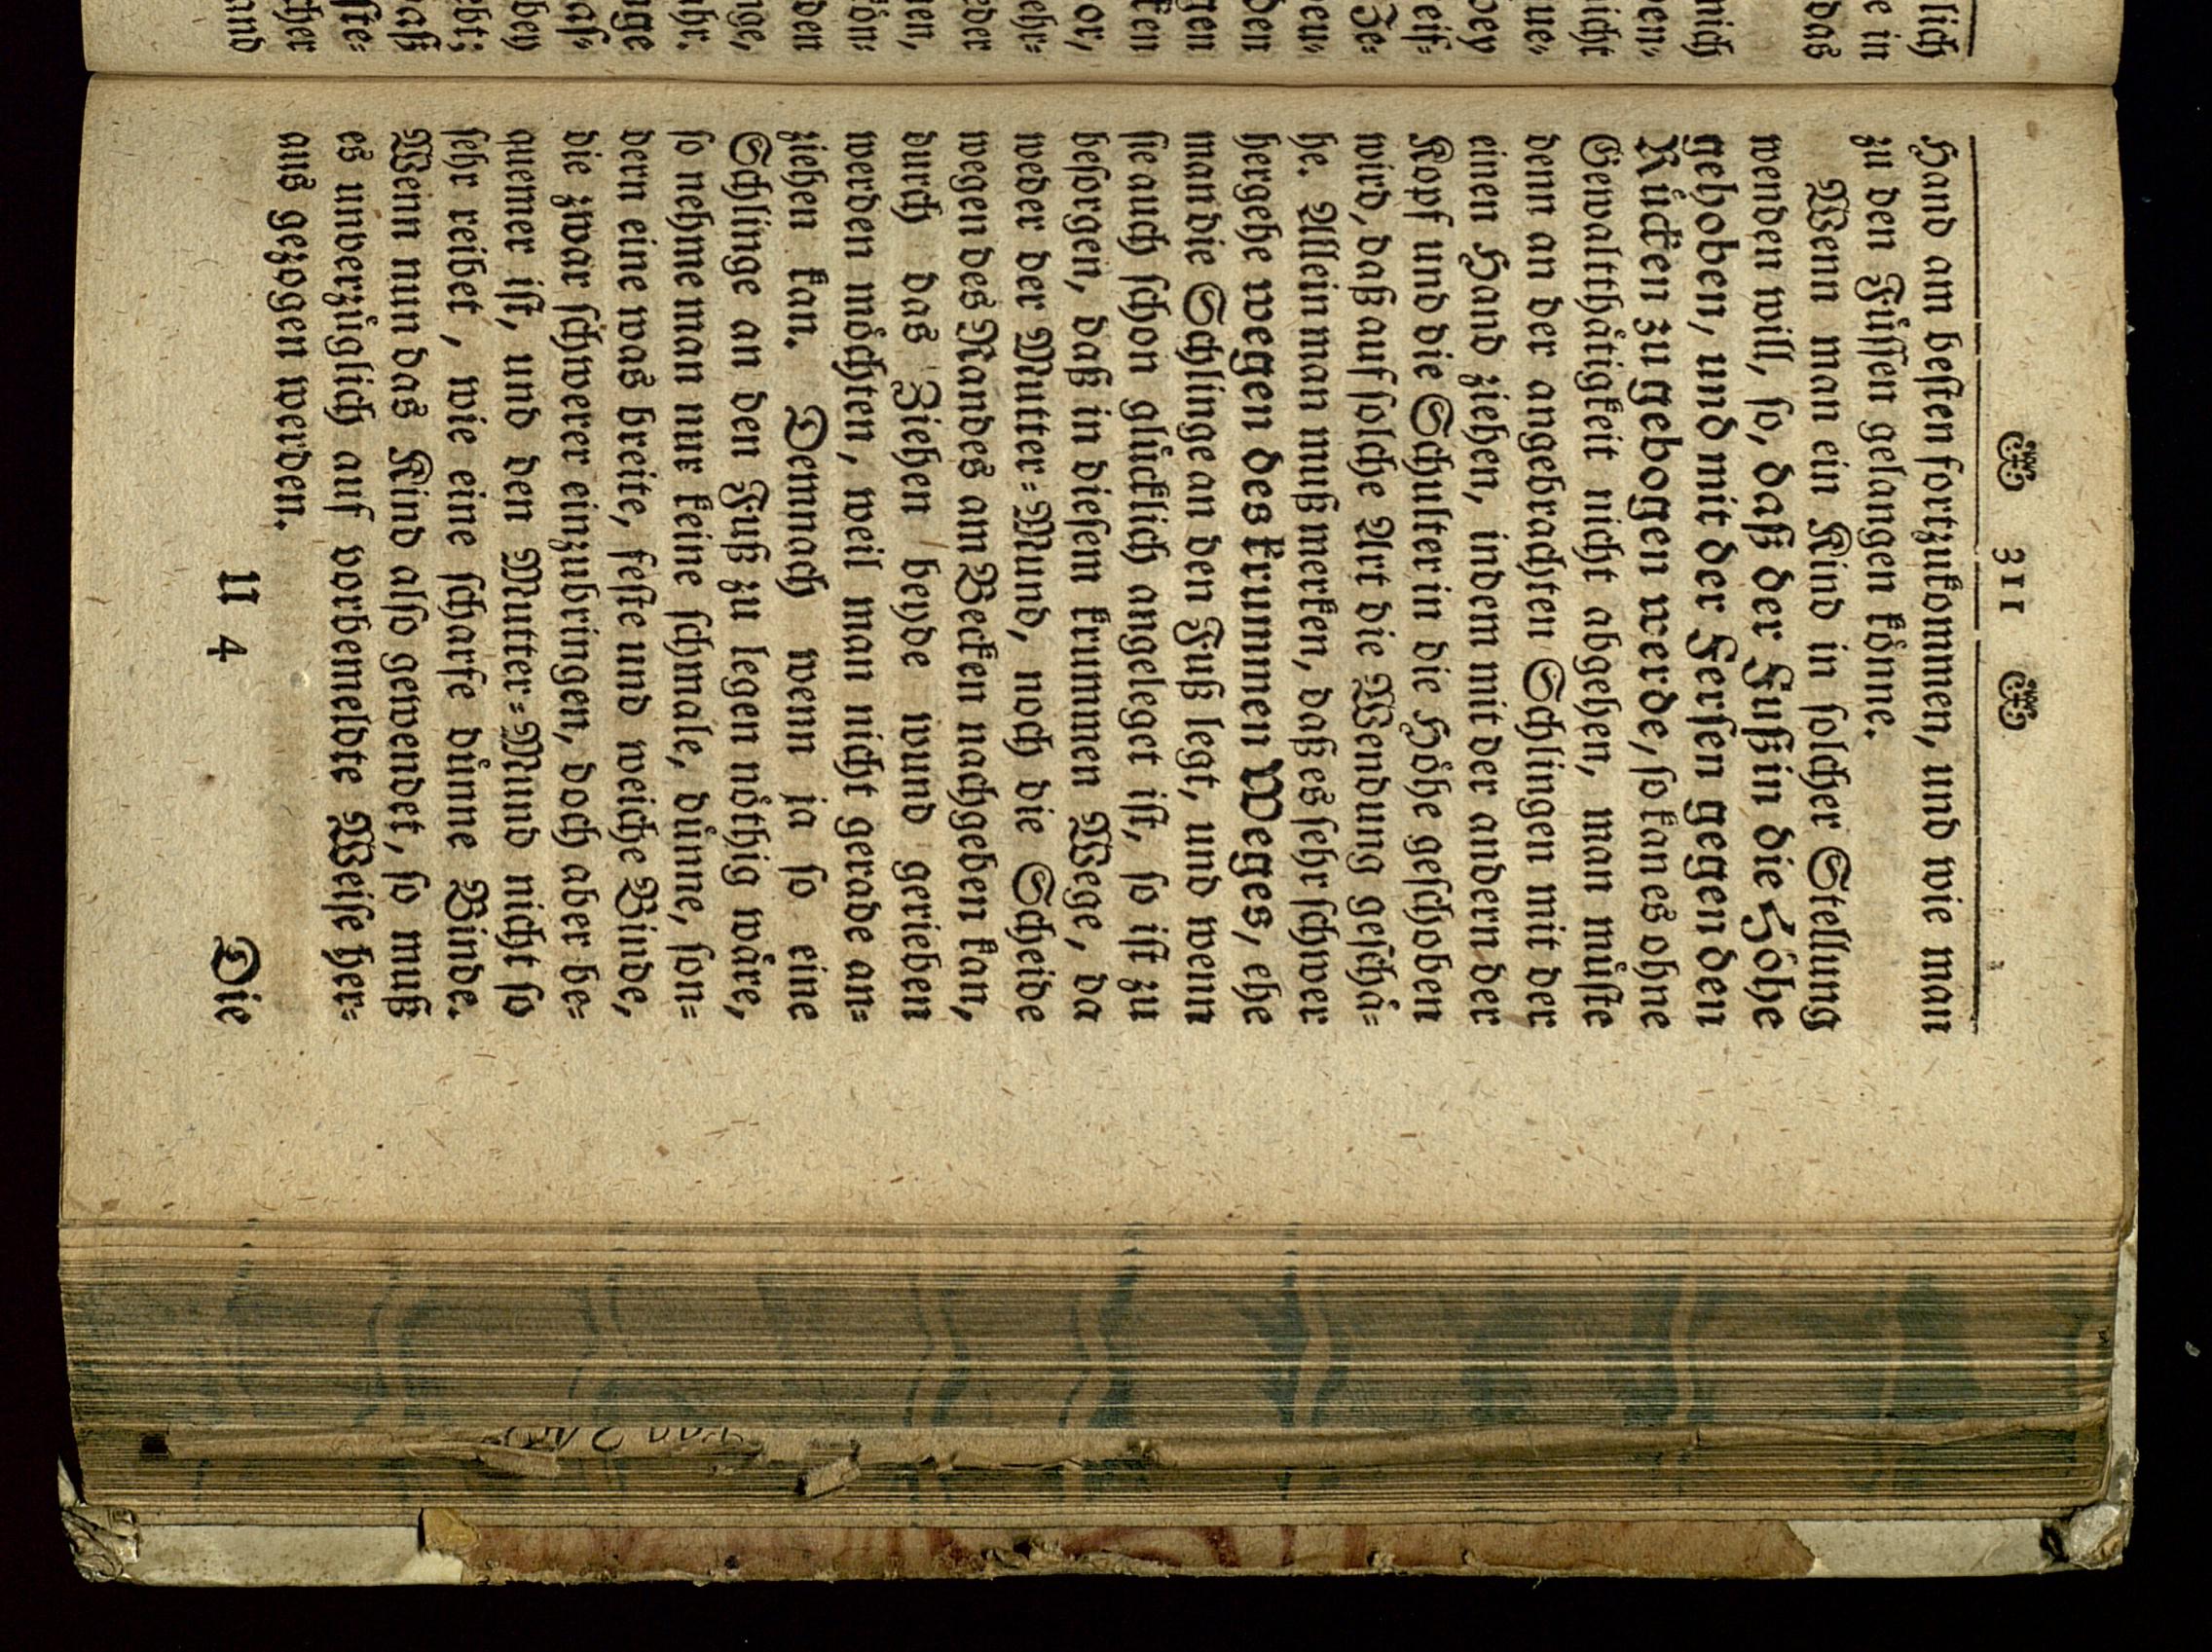 311
Hand am besten fortzukommen, und wie man
zu den Füssen gelangen könne.
Wenn man ein Kind in solcher Stellung
wenden will, so, daß der Fuß in die Höhe
gehoben, und mit der Fersen gegen den
Rücken zu gebogen werde, so kan es ohne
Gewaltthätigkeit nicht abgehen, man müste
denn an der angebrachten Schlingen mit der
einen Hand ziehen, indem mit der andern der
Kopf und die Schulter in die Höhe geschoben
wird, daß auf solche Art die Wendung geschä-
he. Allein man muß merken, daß es sehr schwer
hergehe wegen des krummen Weges, ehe
man die Schlinge an den Fuß legt, und wenn
sie auch schon glücklich angeleget ist, so ist zu
besorgen, daß in diesem krummen Wege, da
weder der Mutter-Mund, noch die Scheide
wegen des Randes am Becken nachgeben kan,
durch das Ziehen beyde wund gerieben
werden möchten, weil man nicht gerade an-
ziehen kan. Demnach wenn ja so eine
Schlinge an den Fuß zu legen nöthig wäre,
so nehme man nur keine schmale, dünne, son-
dern eine was breite, feste und weiche Binde,
die zwar schwerer einzubringen, doch aber be-
quemer ist, und den Mutter-Mund nicht so
sehr reibet, wie eine scharfe dünne Binde.
Wenn nun das Kind also gewendet, so muß
es unverzüglich auf vorbemeldte Weise her-
aus gezogen werden.
U 4
Die